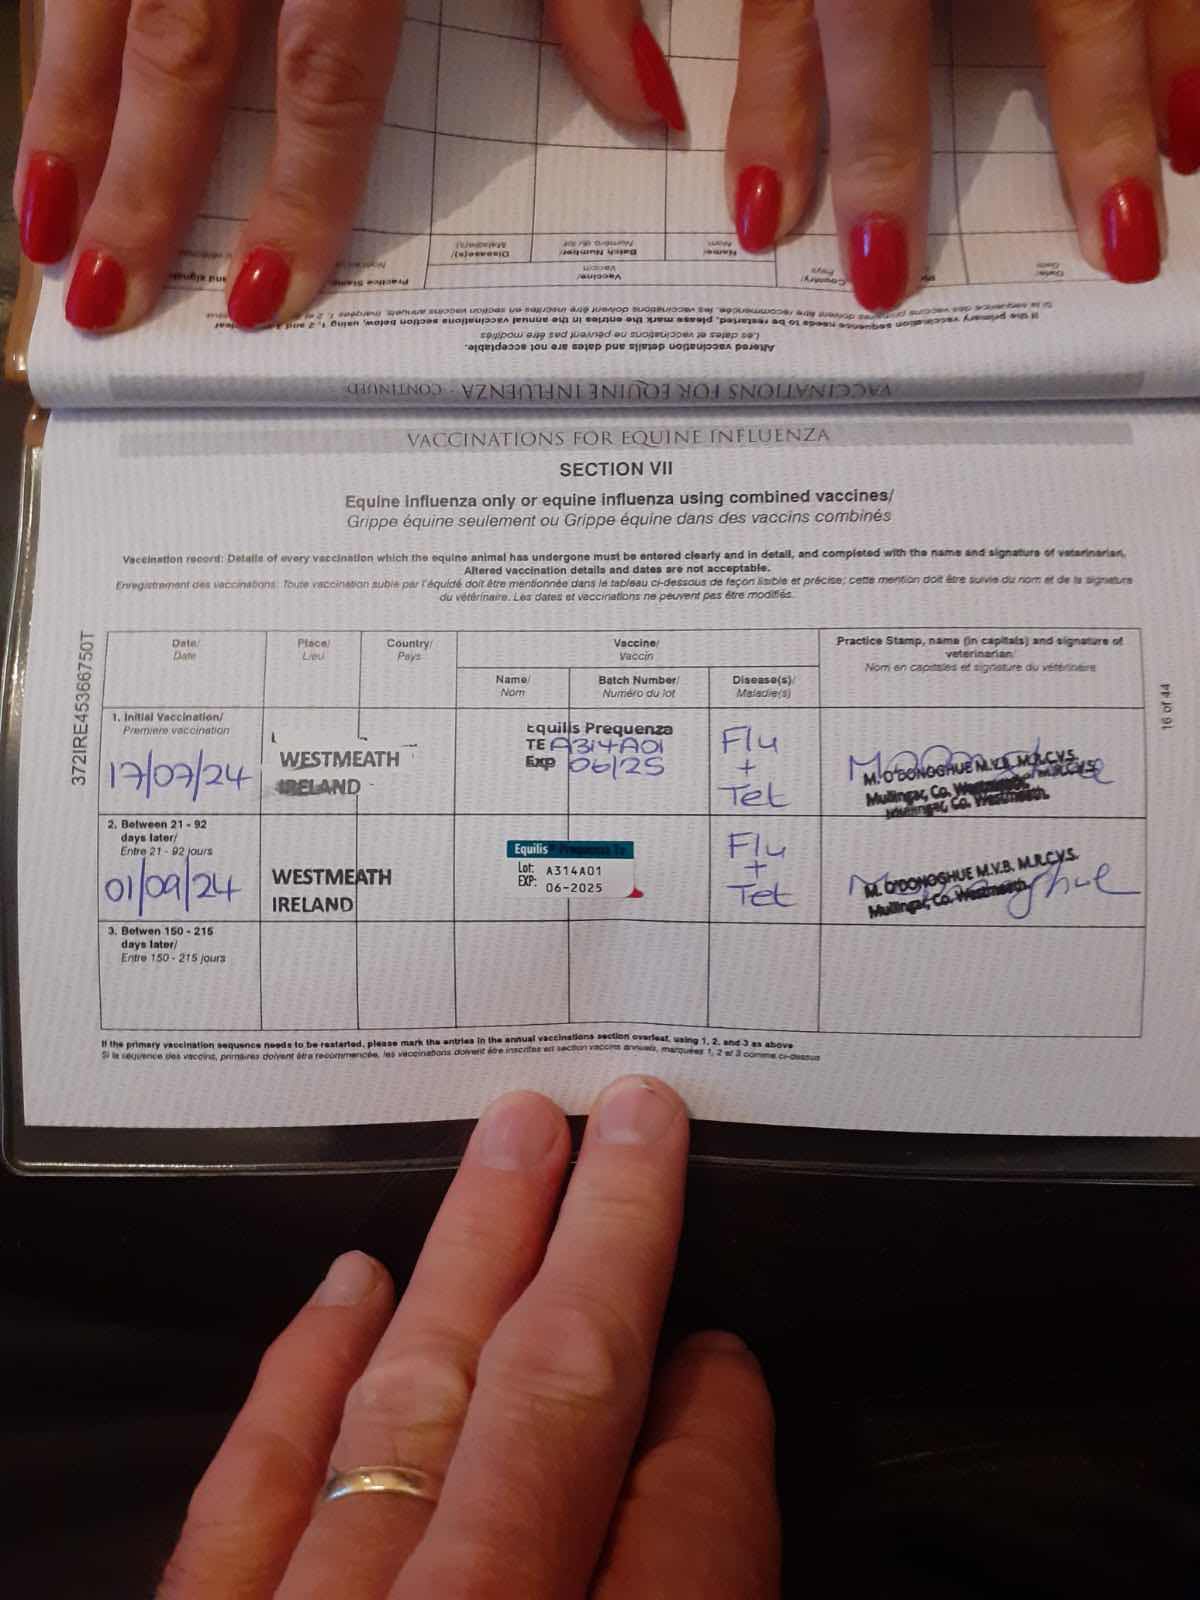 Date/
Date
Country/
Pays
Vaccine/
Vaccin
Practice Stamp,
Name/
Nom
Batch Number/
Numéro du lot
Disease(s)/
Maladie(s)
If the primary vaccination sequence needs to be restarted, please mark the entries in the annual vaccinations section below, using 1, 2 and
Altered vaccination details and dates are not acceptable.
Les dates et vaccinations ne peuvent pas être modifiés
VACCINATIONS FOR EQUINE INFLUENZA - CONTINUED
VACCINATIONS FOR EQUINE INFLUENZA
SECTION VII
Equine influenza only or equine influenza using combined vaccines/
Grippe équine seulement ou Grippe équine dans des vaccins combinés
Vaccination record: Details of every vaccination which the equine animal has undergone must be entered clearly and in detail, and completed with the name and signature of veterinarian.
Altered vaccination details and dates are not acceptable.
Enregistrement des vaccinations: Toute vaccination subie par l'équidé doit être mentionnée dans le tableau ci-dessous de façon lisible et précise; cette mention doit être suivie du nom et de la signature
du vétérinaire. Les dates et vaccinations ne peuvent pas être modifiés.
372IRE45366750T
16 of 44
Date/
Date
Place/
Lieu
Country/
Pays
Vaccine/
Vaccin
Practice Stamp, name (in capitals) and signature of
veterinarian/
Nom en capitales et signature du vétérinaire
Name/
Nom
Batch Number/
Numéro du lot
Disease(s)/
Maladie(s)
1. Initial Vaccination/
Premiere vaccination
17/07/24
WESTMEATH
IRELAND
Equilis Prequenza
TE A314A01
Exp 06/25
Flu
+
Tet
M. O'DONOGHUE M.V.B. M.R.C.V.S.
Mullingar, Co. Westmeath.
2. Between 21 - 92
days later/
Entre 21 - 92 jours
01/09/24
WESTMEATH
IRELAND
Equilis Prequenza Te
Lot: A314A01
EXP: 06-2025
Flu
+
Tet
M. O'DONOGHUE M.V.B. M.R.C.V.S.
Mullingar, Co. Westmeath.
3. Betwen 150 - 215
days later/
Entre 150 - 215 jours
If the primary vaccination sequence needs to be restarted, please mark the entries in the annual vaccinations section overleaf, using 1, 2, and 3 as above
Si la séquence des vaccins, primaires doivent être recommencée, les vaccinations doivent être inscrites en section vaccins annuels, marquées 1, 2 et 3 comme ci-dessus